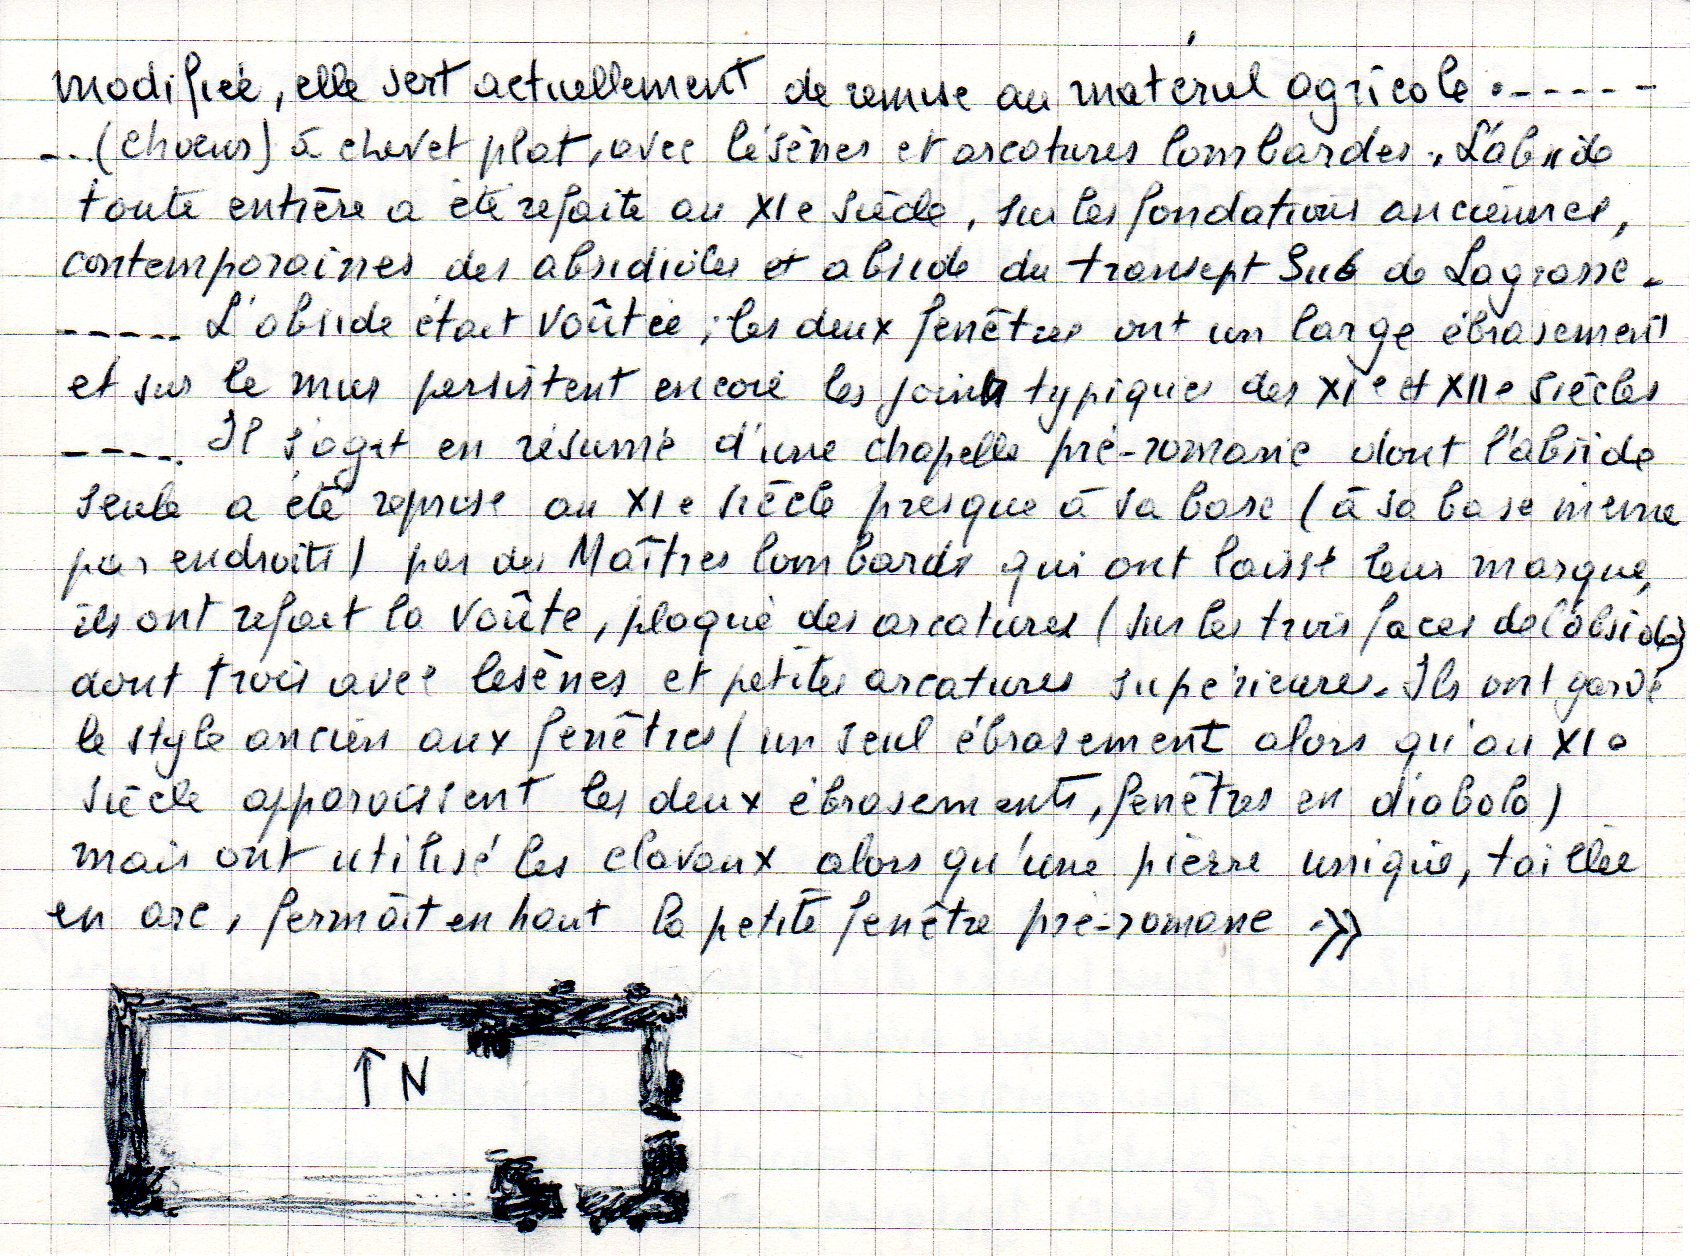 modifiée, elle sert actuellement de remise au matériel agricole .------
--.(chœur) à chevet plat, avec lésènes et arcatures lombardes. L'abside
toute entière a été refaite au XIe siècle, sur les fondations anciennes,
contemporaines des absidioles et abside du transept Sud de Lagrasse.
-----. L'abside était voûtée ; les deux fenêtres ont un large ébrasement
et sur le mur persistent encore les joints typiques des XIe et XIIe siècles
----. Il s'agit en résumé d'une chapelle pré-romane dont l'abside
seule a été reprise au XIe siècle presque à sa base (à sa base même
par endroits) par des Maîtres lombards qui ont laissé leur marque,
ils ont refait la voûte, plaqué des arcatures (sur les trois faces de l'abside)
dont trois avec lesènes et petites arcatures supérieures. Ils ont gardé
le style ancien aux fenêtres (un seul ébrasement alors qu'au XIe
siècle apparaissent les deux ébrasements, fenêtres en diabolo)
mais ont utilisé les claveaux alors qu'une pierre unique, taillée
en arc, fermait en haut la petite fenêtre pré-romane »
↑ N